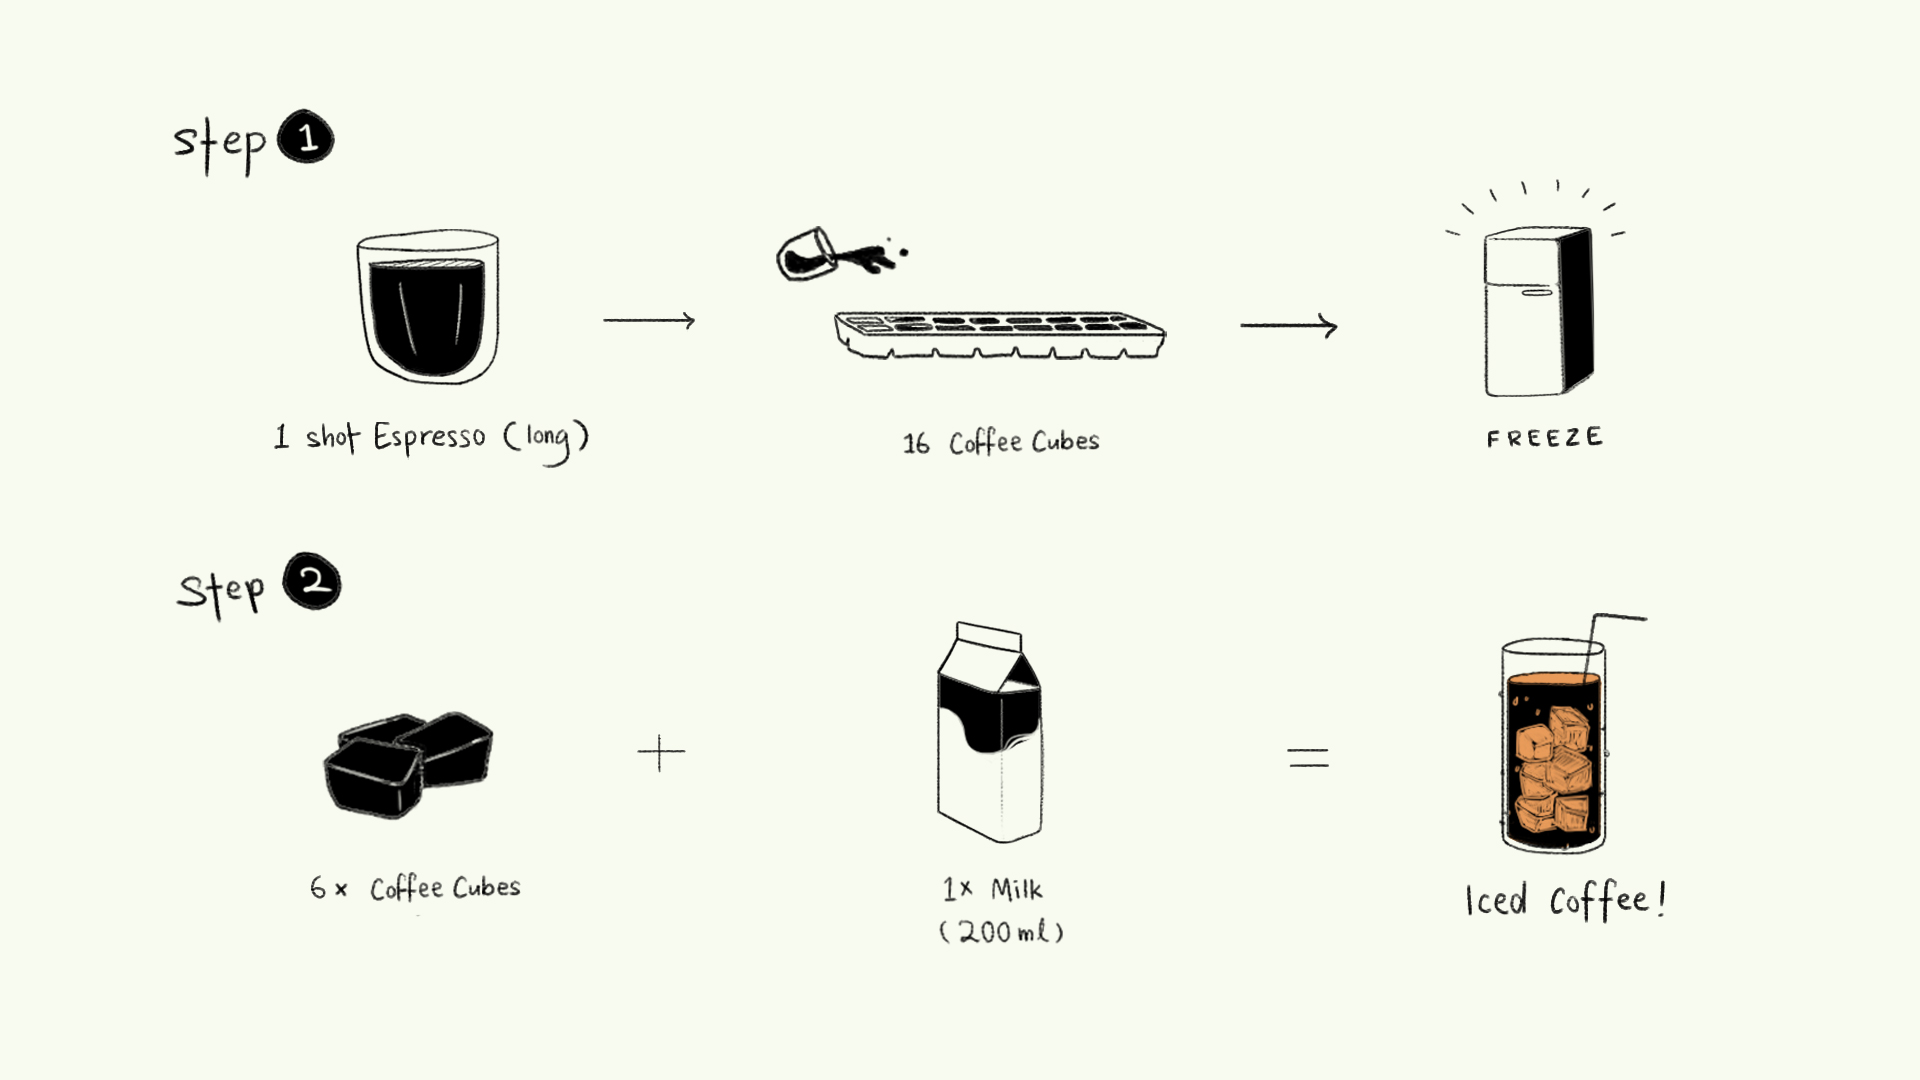 step 1
1 shot Espresso (long)
16 Coffee Cubes
FREEZE
Step 2
6 x Coffee Cubes
1x Milk
(200 ml)
Iced Coffee!